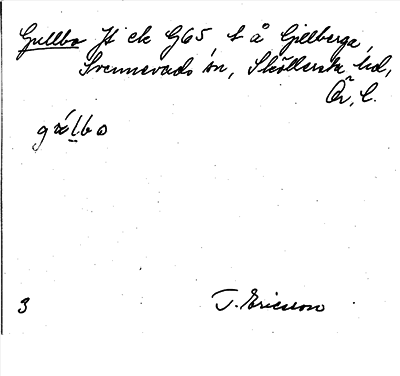 Gullbo It ek G65 t å Gillberga,
Svennevads sn, Sköllersta hd,
Ör. l.
gúlbo
3
T. Ericsson